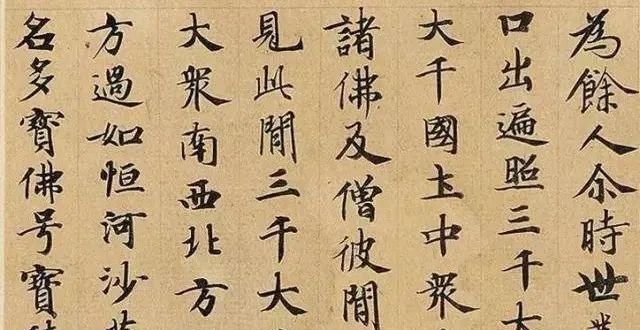 為餘人尒時世
口出遍照三千大
大千國圡中衆
諸佛及僧彼間
見此間三千大
大衆南西北方
方過如恒河沙
名多寶佛号寶